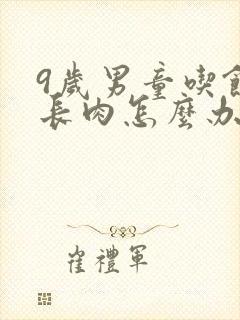 9歲男童喫飯
長肉怎麼办
崔禮軍